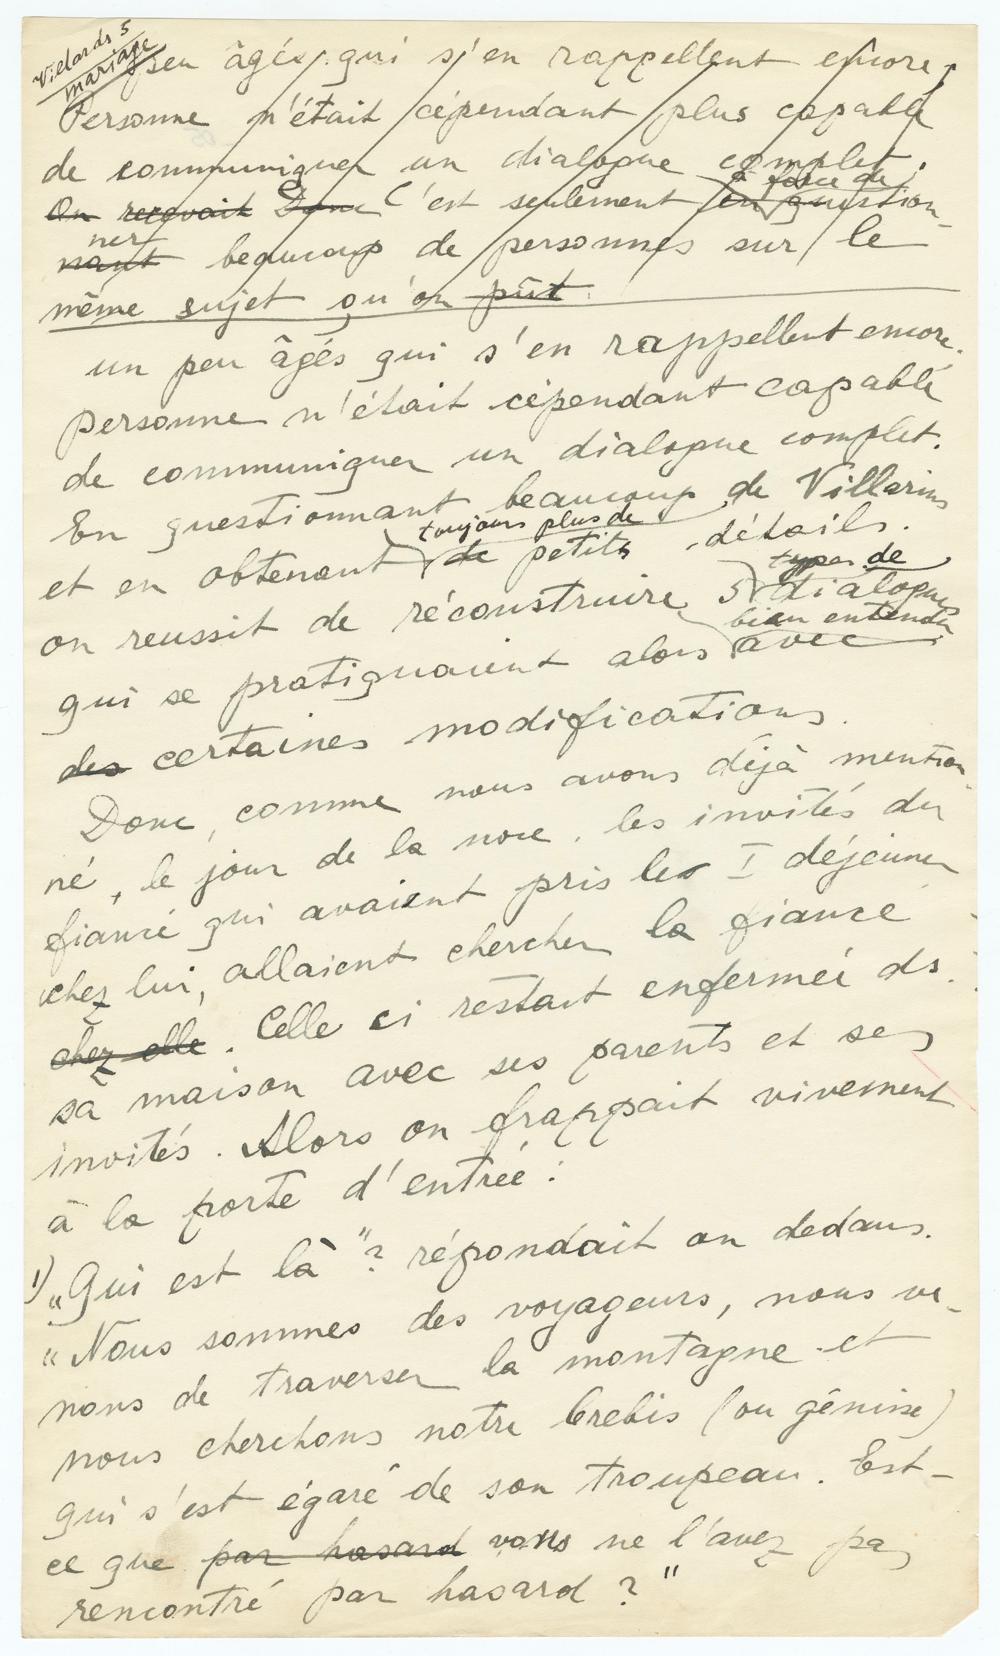 Vielards 5
mariage
peu âgés, qui s'en rappellent encore,
Personne n'était cépendant plus capable
de communiquer un dialogue complet.
On recevait Donc C'est seulement en question-
à force de
nant beaucoup de personnes sur le
ner
même sujet qu'on pût.
un peu âgés qui s'en rappellent encore.
Personne n'était cépendant capable
de communiquer un dialogue complet.
En questionnant beaucoup de Villarins
toujours plus de
et en obtenant de petits détails.
types de
on reussit de réconstruire 5 dialogues
bien entendu
qui se pratiquaient alors avec
des certaines modifications.
Donc, comme nous avons déjà mention-
né, le jour de la noce. les invités du
fiancé qui avaient pris les I déjeuner
chez lui, allaient chercher la fiancé
chez elle. Celle ci restait enfermée ds.
sa maison avec ses parents et ses
invités. Alors on frappait vivement
à la porte d'entrée:
1) "Qui est là"? répondait on dedans.
"Nous sommes des voyageurs, nous ve-
nons de traverser la montagne et
nous cherchons notre brebis (ou génise)
qui s'est égaré de son troupeau. Est-
ce que par hasard vous ne l'avez pas
rencontré par hasard?"